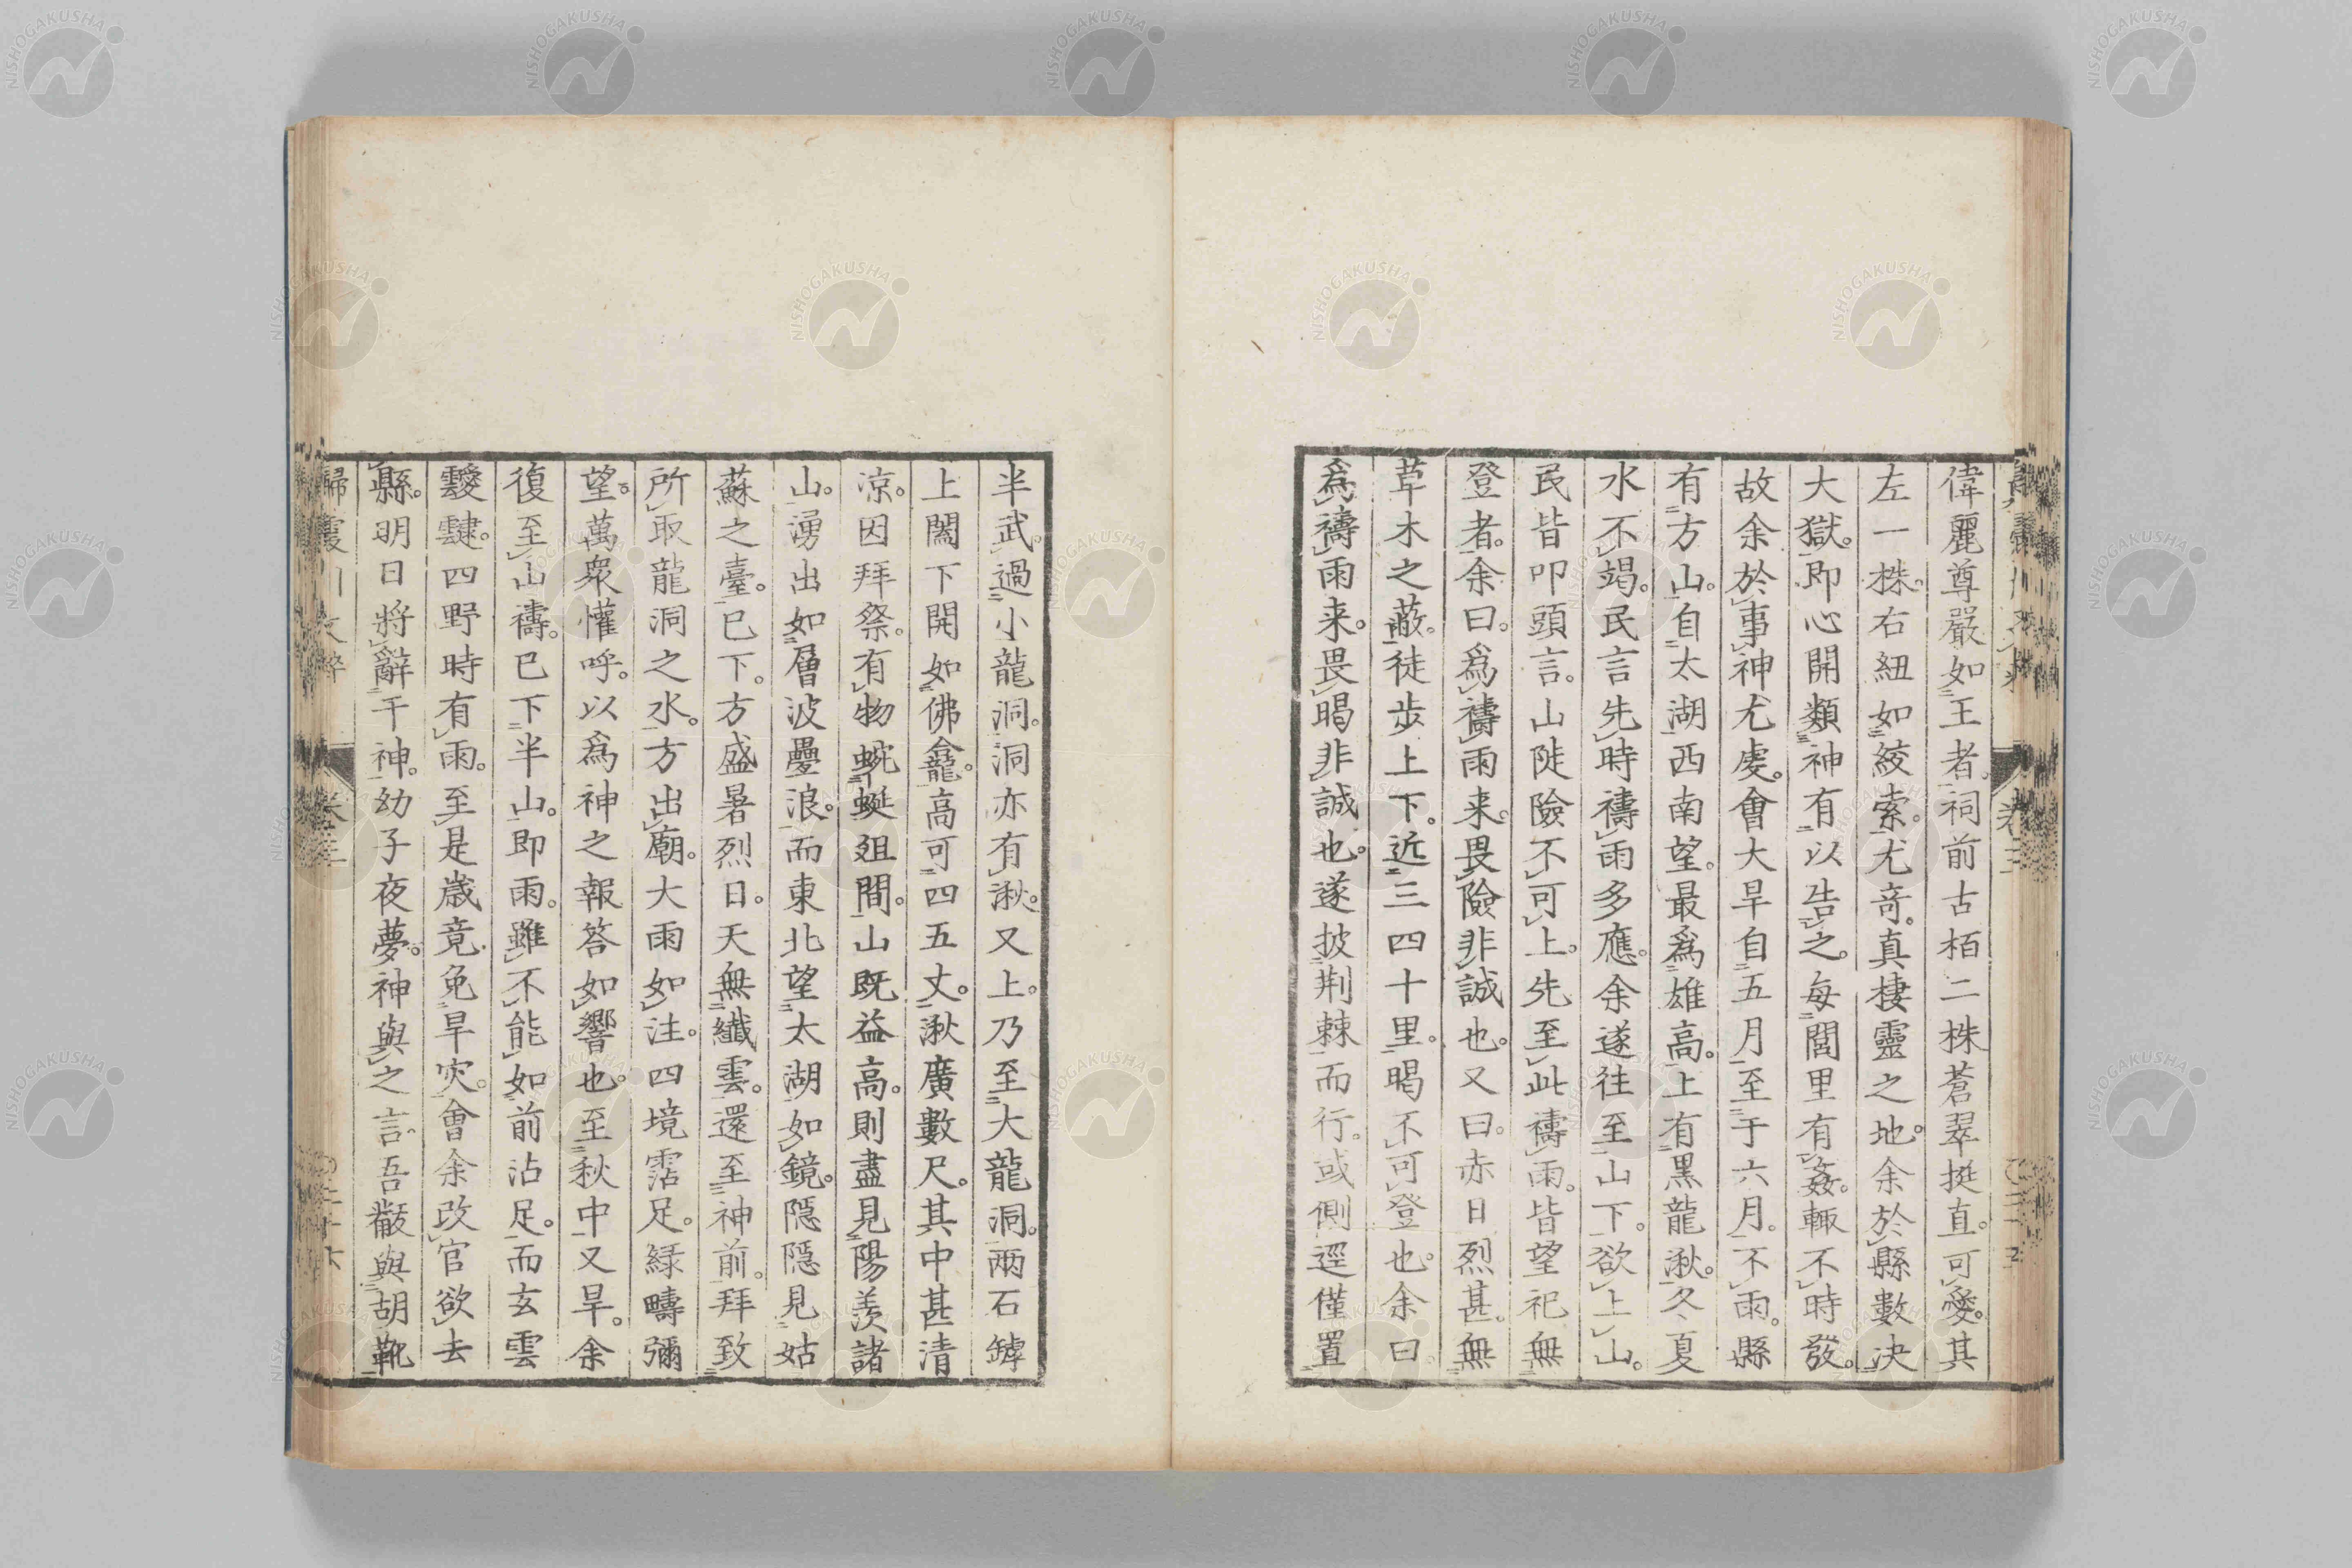 偉麗尊嚴如王者。祠前古栢二株蒼翠挺直。可愛。其
左一株。右紐如絞索。尤奇。真棲靈之地。余於縣數决
大獄。即心開類神有以告之。每閭里有姦。輒不時發。
故余於事神尤虔。會大旱自五月至于六月。不雨。縣
有方山。自太湖西南望。最爲雄高。上有黑龍湫。冬夏
水不竭。民言先時禱雨多應。余遂往至山下。欲上山。
民皆叩頭言。山陡險不可上。先至此禱雨。皆望祀無
登者。余曰。爲禱雨来。畏險非誠也。又曰。赤日烈甚。無
草木之蔽。徒步上下。近三四十里。暍不可登也。余曰
爲禱雨来。畏暍非誠也。遂披荆棘而行。或側逕僅置
半武。過小龍洞。洞亦有湫。又上。乃至大龍洞。兩石罅
上闔下開如佛龕。高可四五丈。湫廣數尺。其中甚清
凉。因拜祭。有物蜿蜒爼間。山既益高。則盡見陽羨諸
山。湧出如層波疊浪。而東北望太湖如鏡。隠隠見姑
蘇之臺。已下。方盛暑烈日。天無纖雲。還至神前。拜致
所取龍洞之水。方出廟。大雨如注。四境霑足。緑疇彌
望。萬衆懽呼。以爲神之報答如響也。至秋中又旱。余
復至山禱。已下半山。即雨。雖不能如前沾足。而玄雲
靉靆。四野時有雨。至是歳竟免旱灾。會余改官欲去
縣。明日將辭于神。幼子夜夢。神與之言。吾㿗與胡靴
歸震川文粹
卷三